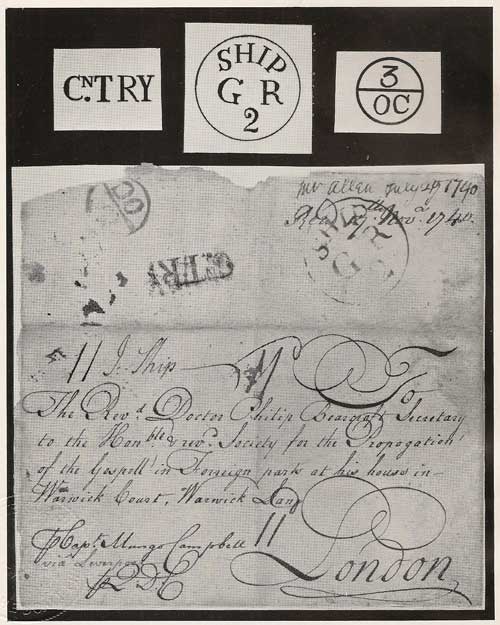 CN.TRY
SHIP
G R
2
3
OC
OC
CN.TRY
SHIP
G R
Mr Allen July 29 1740
Nov.r 1740.
11 J. Ship 11 To
The Rev.d Doctor Philip Bearcroft Secretary
to the Honble & rev.d Society for the Propogation
of the Gospell in Foreign parts at his house in
Warwick Court, Warwick Lane
Capt. Mungo Campbell 11
via Liverpool London
QDC